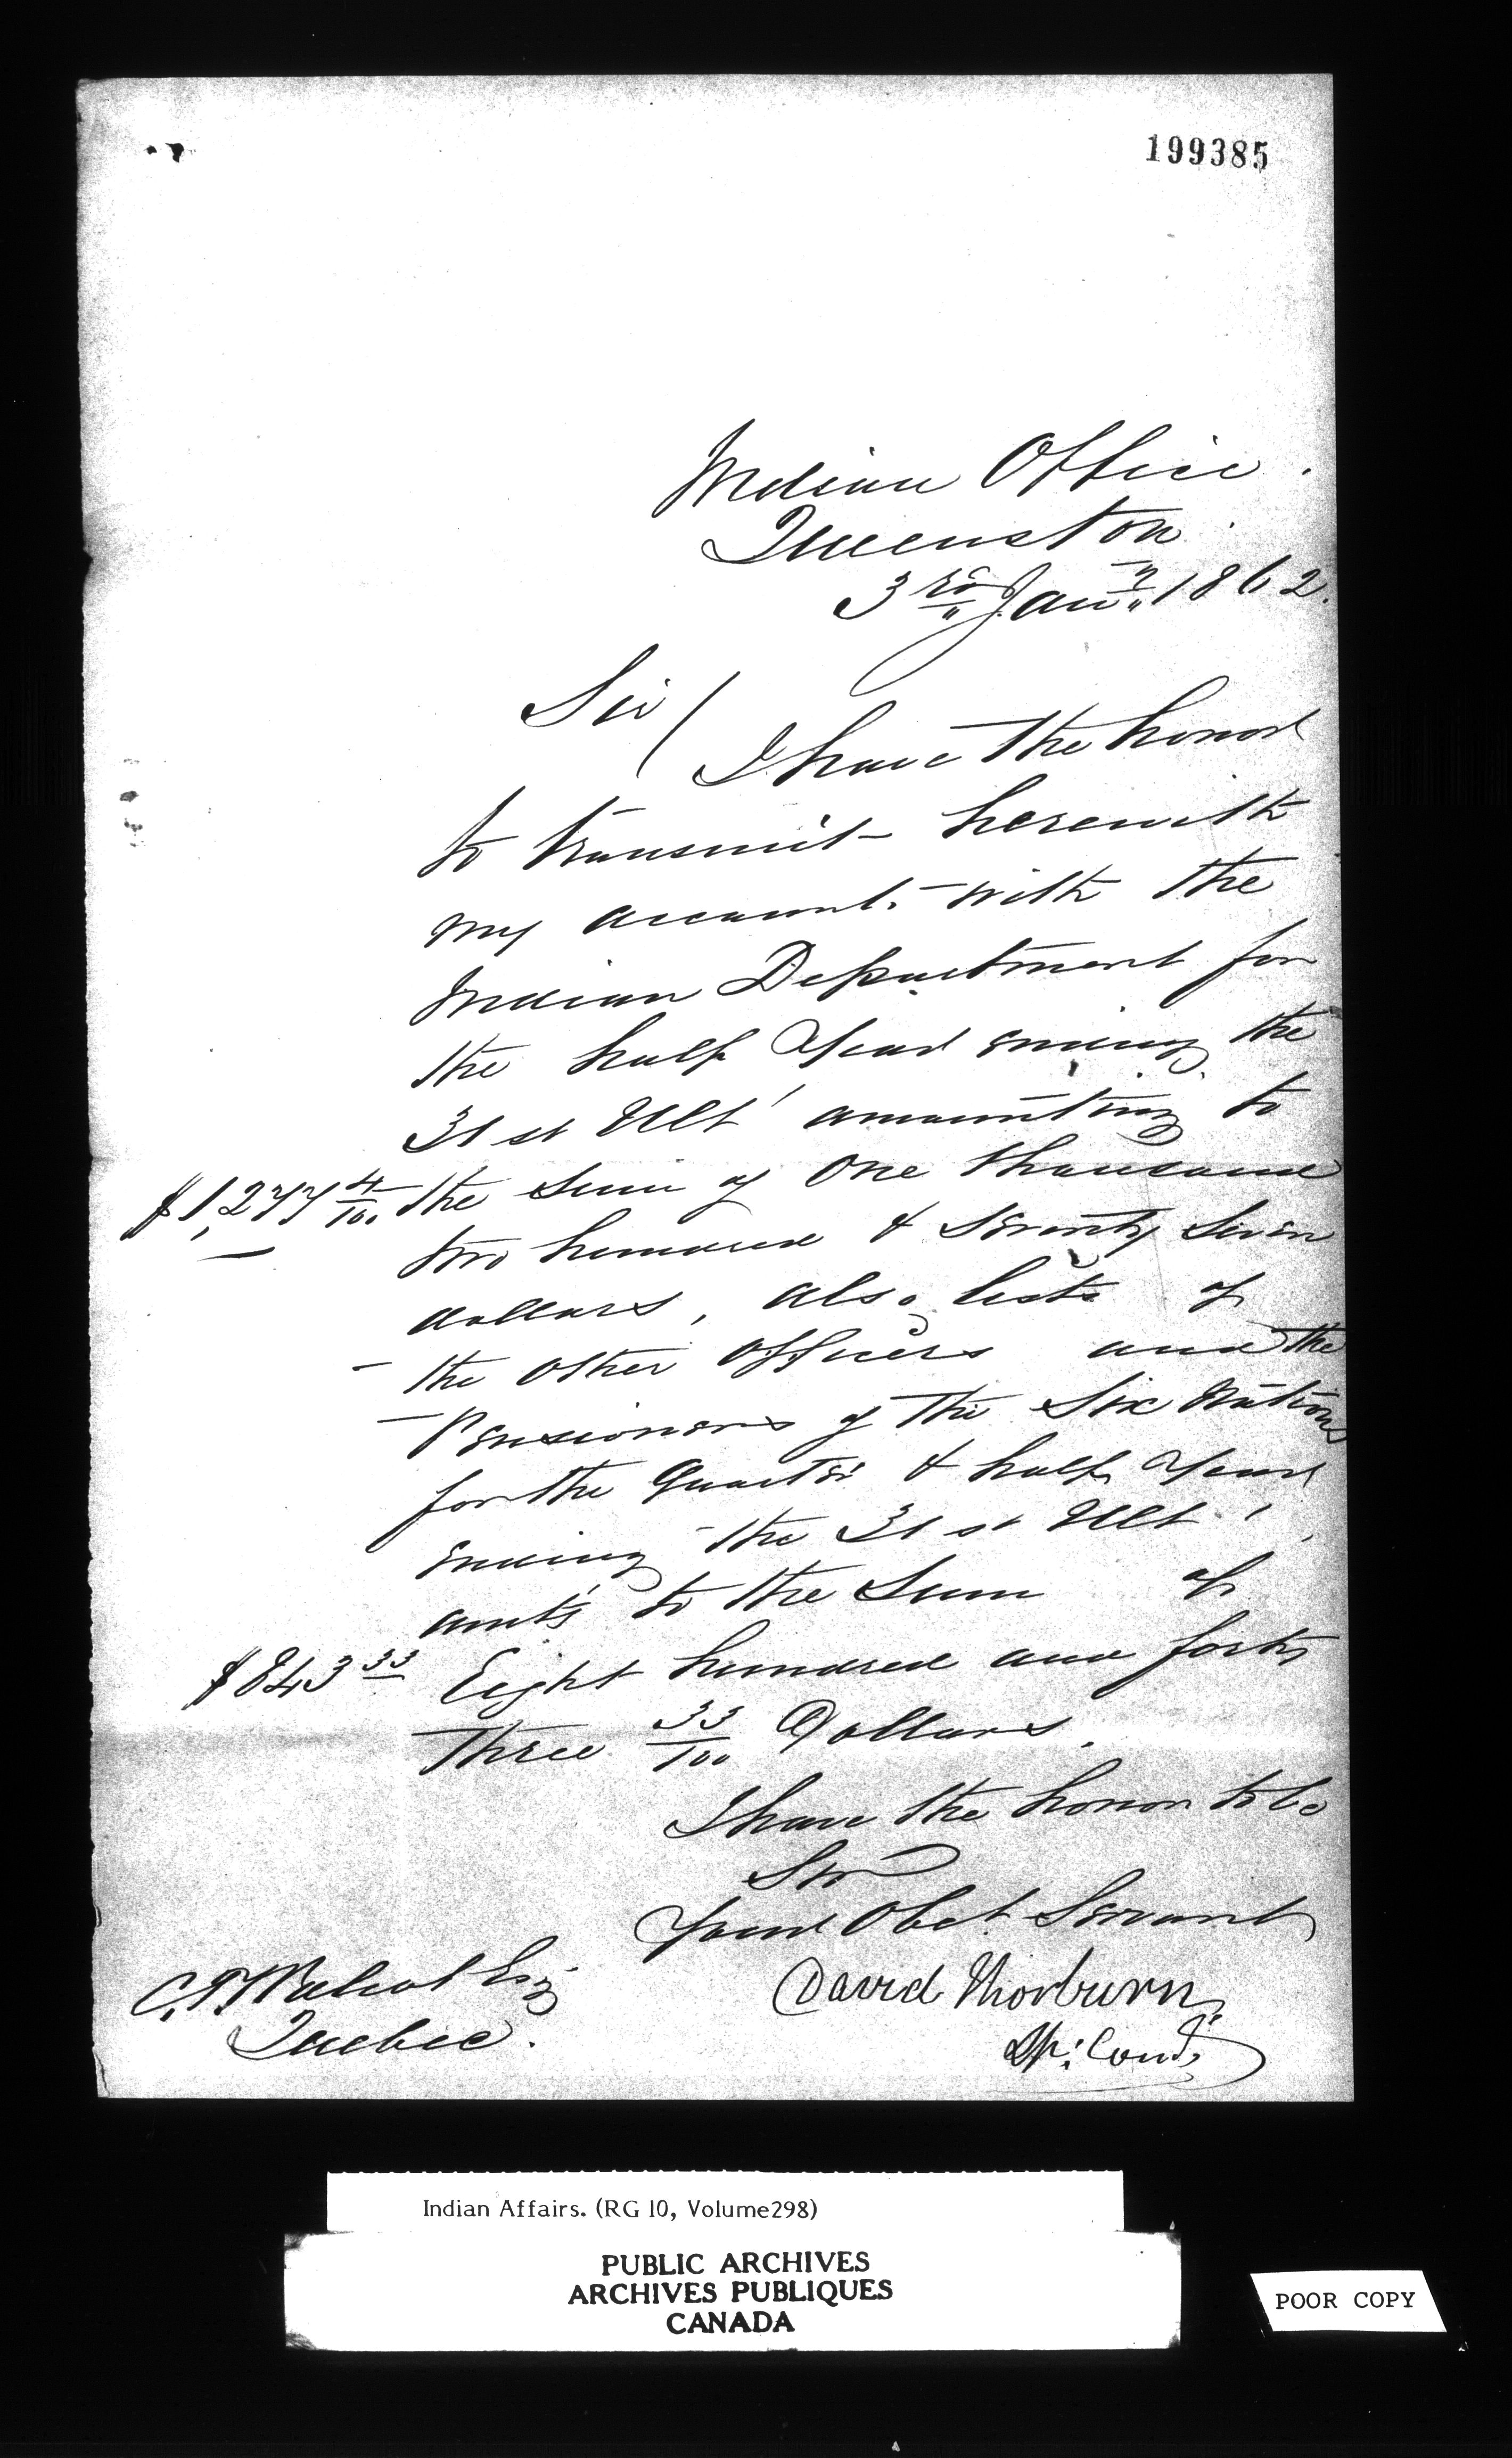 199385
Indian Office.
Queenston
3rd Jany 1862.
Sir /
I have the honor
to transmit herewith
my account with the
Indian Department for
the half Year ending the
31st Ult' amounting to
$1,277 4/100 the sum of One thousand
two hundred & Seventy Seven
dollars, also lists of
the Other Officers and the
Pensioners of the Six Nations
for the Quarter & half Year
ending the 31st Ult'
amts to the Sum of
$843 33 Eight hundred and forty
Three 33/100 Dollars.
I have the honor to be
Sir
Your Obet. Servant
David Thorburn
Sp: Comr
C. T. Walcot Esq
Quebec.
Indian Affairs. (RG 10, Volume298)
PUBLIC ARCHIVES
ARCHIVES PUBLIQUES
CANADA
POOR COPY